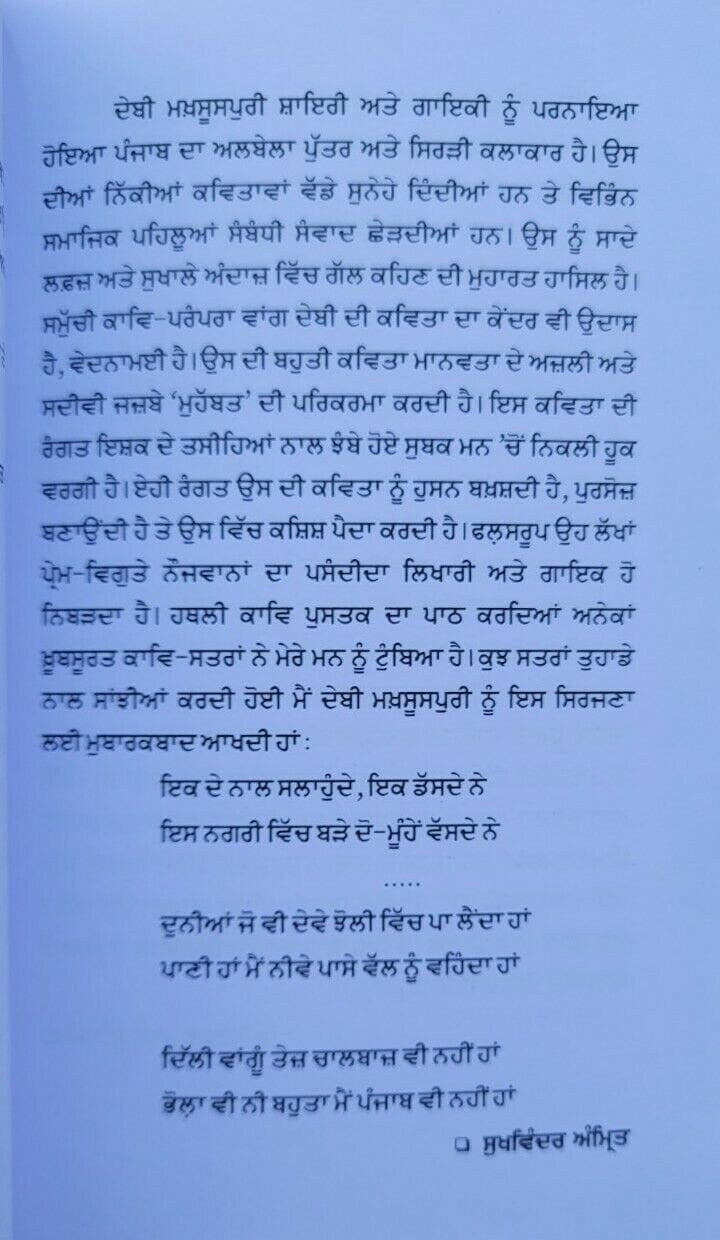 ਦੇਬੀ ਮਖ਼ਸੂਸਪੁਰੀ ਸ਼ਾਇਰੀ ਅਤੇ ਗਾਇਕੀ ਨੂੰ ਪਰਨਾਇਆ
ਹੋਇਆ ਪੰਜਾਬ ਦਾ ਅਲਬੇਲਾ ਪੁੱਤਰ ਅਤੇ ਸਿਰੜੀ ਕਲਾਕਾਰ ਹੈ। ਉਸ
ਦੀਆਂ ਨਿੱਕੀਆਂ ਕਵਿਤਾਵਾਂ ਵੱਡੇ ਸੁਨੇਹੇ ਦਿੰਦੀਆਂ ਹਨ ਤੇ ਵਿਭਿੰਨ
ਸਮਾਜਿਕ ਪਹਿਲੂਆਂ ਸੰਬੰਧੀ ਸੰਵਾਦ ਛੇੜਦੀਆਂ ਹਨ। ਉਸ ਨੂੰ ਸਾਦੇ
ਲਫ਼ਜ਼ ਅਤੇ ਸੁਖਾਲੇ ਅੰਦਾਜ਼ ਵਿੱਚ ਗੱਲ ਕਹਿਣ ਦੀ ਮੁਹਾਰਤ ਹਾਸਿਲ ਹੈ।
ਸਮੁੱਚੀ ਕਾਵਿ-ਪਰੰਪਰਾ ਵਾਂਗ ਦੇਬੀ ਦੀ ਕਵਿਤਾ ਦਾ ਕੇਂਦਰ ਵੀ ਉਦਾਸ
ਹੈ, ਵੇਦਨਾਮਈ ਹੈ। ਉਸ ਦੀ ਬਹੁਤੀ ਕਵਿਤਾ ਮਾਨਵਤਾ ਦੇ ਅਜ਼ਲੀ ਅਤੇ
ਸਦੀਵੀ ਜਜ਼ਬੇ ‘ਮੁਹੱਬਤ’ ਦੀ ਪਰਿਕਰਮਾ ਕਰਦੀ ਹੈ। ਇਸ ਕਵਿਤਾ ਦੀ
ਰੰਗਤ ਇਸ਼ਕ ਦੇ ਤਸੀਹਿਆਂ ਨਾਲ ਝੰਬੇ ਹੋਏ ਸੂਬਕ ਮਨ ’ਚੋਂ ਨਿਕਲੀ ਹੂਕ
ਵਰਗੀ ਹੈ। ਏਹੀ ਰੰਗਤ ਉਸ ਦੀ ਕਵਿਤਾ ਨੂੰ ਹੁਸਨ ਬਖ਼ਸ਼ਦੀ ਹੈ, ਪੁਰਸੋਜ਼
ਬਣਾਉਂਦੀ ਹੈ ਤੇ ਉਸ ਵਿੱਚ ਕਸ਼ਿਸ਼ ਪੈਦਾ ਕਰਦੀ ਹੈ। ਫਲ਼ਸਰੂਪ ਉਹ ਲੱਖਾਂ
ਪ੍ਰੇਮ-ਵਿਗੁਤੇ ਨੌਜਵਾਨਾਂ ਦਾ ਪਸੰਦੀਦਾ ਲਿਖਾਰੀ ਅਤੇ ਗਾਇਕ ਹੋ
ਨਿਬੜਦਾ ਹੈ। ਹਥਲੀ ਕਾਵਿ ਪੁਸਤਕ ਦਾ ਪਾਠ ਕਰਦਿਆਂ ਅਨੇਕਾਂ
ਖ਼ੂਬਸੂਰਤ ਕਾਵਿ-ਸਤਰਾਂ ਨੇ ਮੇਰੇ ਮਨ ਨੂੰ ਟੁੰਬਿਆ ਹੈ। ਕੁਝ ਸਤਰਾਂ ਤੁਹਾਡੇ
ਨਾਲ ਸਾਂਝੀਆਂ ਕਰਦੀ ਹੋਈ ਮੈਂ ਦੇਬੀ ਮਖ਼ਸੂਸਪੁਰੀ ਨੂੰ ਇਸ ਸਿਰਜਣਾ
ਲਈ ਮੁਬਾਰਕਬਾਦ ਆਖਦੀ ਹਾਂ :
ਇਕ ਦੇ ਨਾਲ ਸਲਾਹੁੰਦੇ, ਇਕ ਡੱਸਦੇ ਨੇ
ਇਸ ਨਗਰੀ ਵਿੱਚ ਬੜੇ ਦੋ-ਮੂੰਹੇਂ ਵੱਸਦੇ ਨੇ
.....
ਦੁਨੀਆਂ ਜੋ ਵੀ ਦੇਵੇ ਝੋਲੀ ਵਿੱਚ ਪਾ ਲੈਂਦਾ ਹਾਂ
ਪਾਣੀ ਹਾਂ ਮੈਂ ਨੀਵੇ ਪਾਸੇ ਵੱਲ ਨੂੰ ਵਹਿੰਦਾ ਹਾਂ
ਦਿੱਲੀ ਵਾਂਗੂੰ ਤੇਜ਼ ਚਾਲਬਾਜ਼ ਵੀ ਨਹੀਂ ਹਾਂ
ਭੋਲ਼ਾ ਵੀ ਨੀ ਬਹੁਤਾ ਮੈਂ ਪੰਜਾਬ ਵੀ ਨਹੀਂ ਹਾਂ
❏ ਸੁਖਵਿੰਦਰ ਅੰਮ੍ਰਿਤ